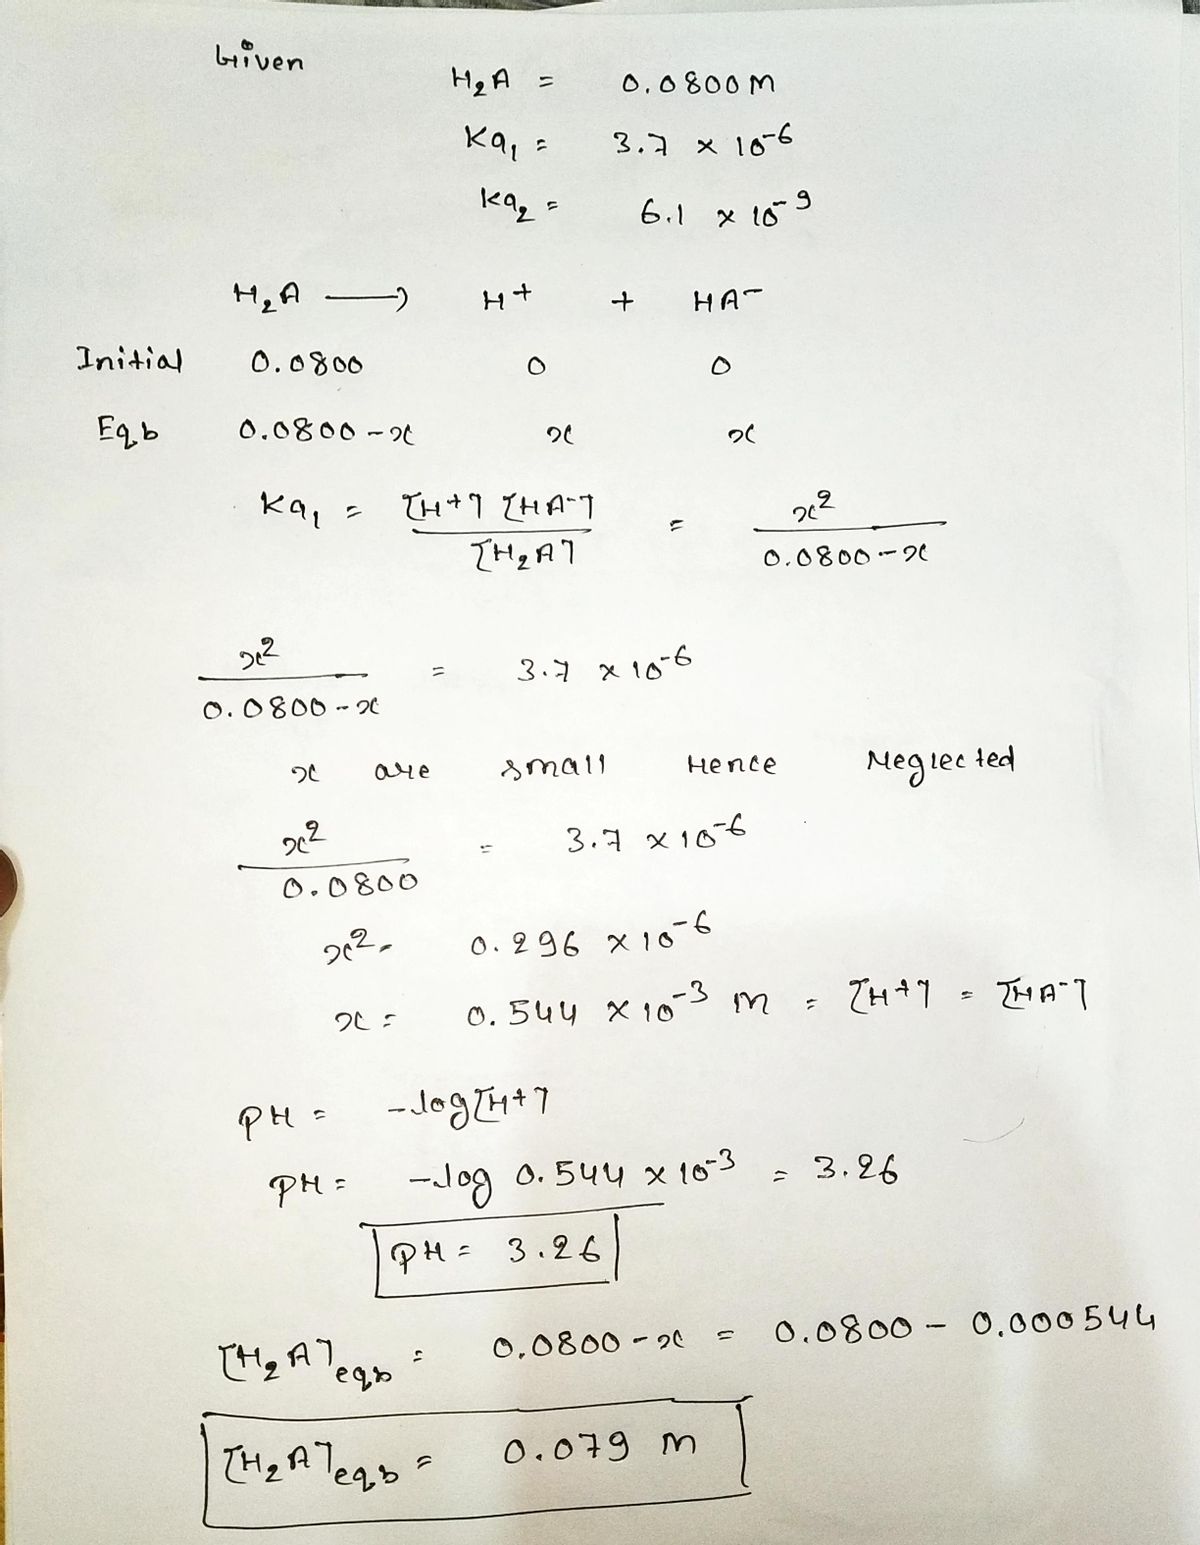 Given
H₂A = 0.0800 M
Ka₁ = 3.7 × 10⁻⁶
Ka₂ = 6.1 × 10⁻⁹
H₂A ⟶ H⁺ + HA⁻
Initial 0.0800 0 0
Eqb 0.0800 - x x x
Ka₁ = [H⁺] [HA⁻] / [H₂A] = x² / 0.0800 - x
x² / 0.0800 - x = 3.7 × 10⁻⁶
x are small Hence Neglected
x² / 0.0800 = 3.7 × 10⁻⁶
x² = 0.296 × 10⁻⁶
x = 0.544 × 10⁻³ M = [H⁺] = [HA⁻]
PH = -log[H⁺]
PH = -log 0.544 × 10⁻³ = 3.26
PH = 3.26
[H₂A]eqb = 0.0800 - x = 0.0800 - 0.000544
[H₂A]eqb = 0.079 M